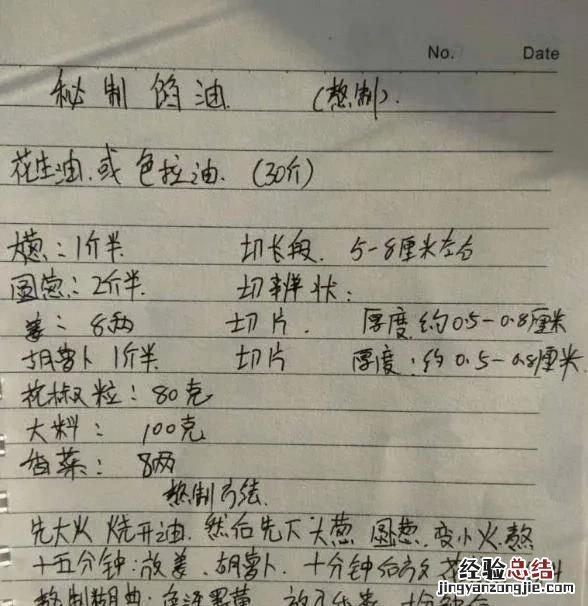 No. Date
秘制馅油 (熬制).
花生油.或色拉油. (30斤)
大葱:1斤半. 切长段. 5-8厘米左右
圆葱:2斤半. 切辦状:
姜:8两 切片. 厚度.约0.5-0.8厘米
胡萝卜1斤半. 切片 厚度:约0.5-0.8厘米.
花椒粒:80克
大料: 100克
香菜: 8两
熬制方法.
先大火烧开油.然后先下大葱 圆葱.变小火.熬
十五分钟:放姜 胡萝卜.十分钟后放
经验总结
jingyanzongjie.com